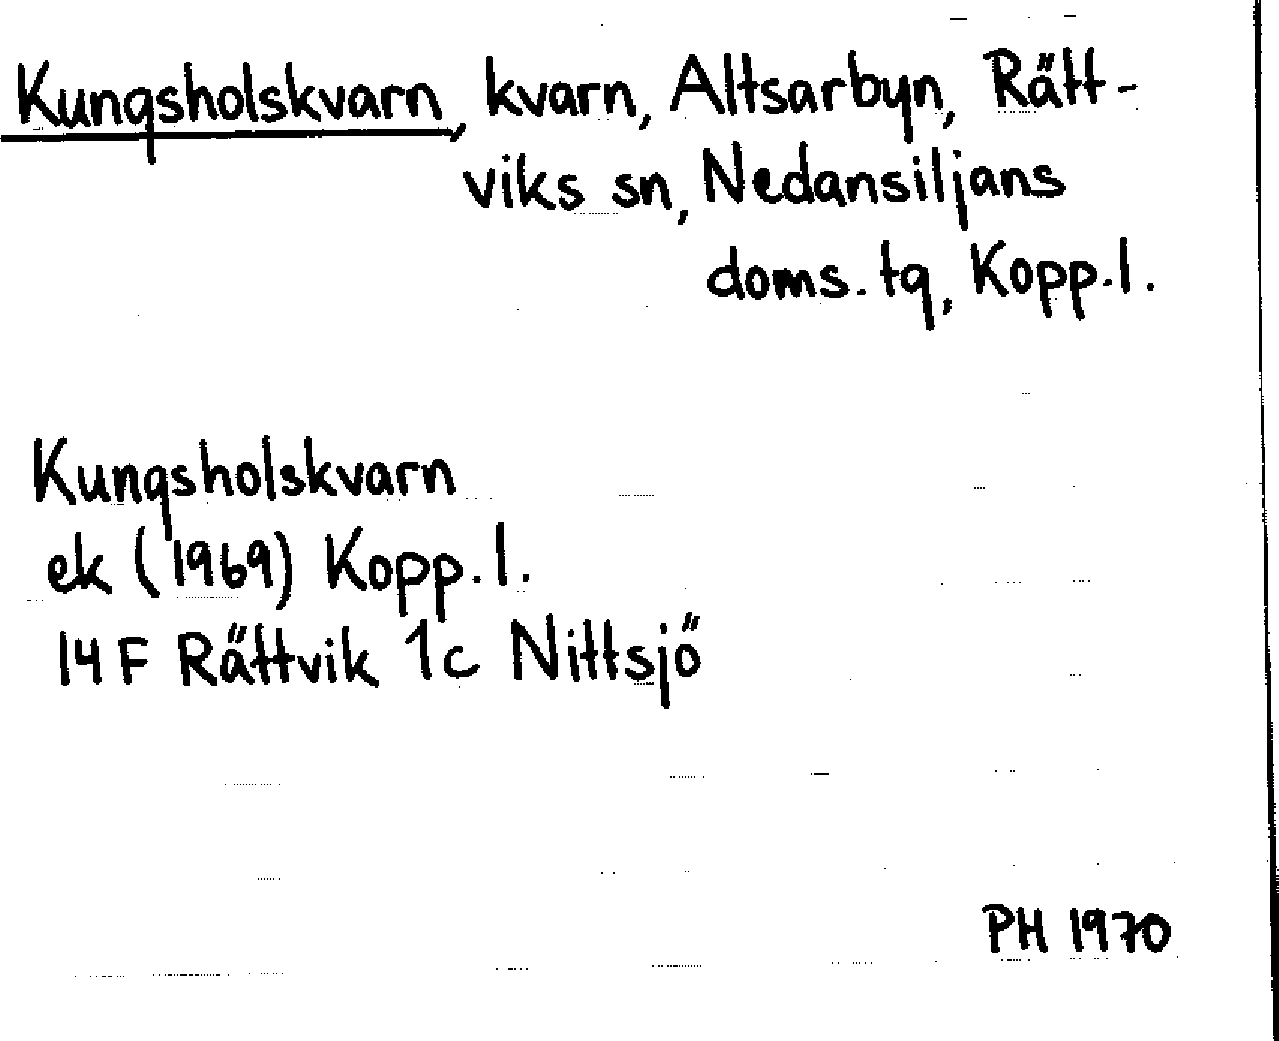 Kungsholskvarn, kvarn, Altsarbyn, Rätt-
viks sn, Nedansiljans
doms. tg, Kopp.l.
Kungsholskvarn
ek (1969) Kopp.l.
14 F Rättvik 1c Nittsjö
PH 1970